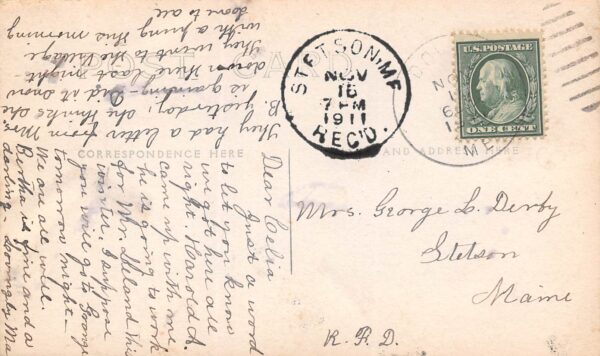 POST CARD
CORRESPONDENCE HERE
AND ADDRESS HERE
STETSON, ME.
NOV
16
7 PM
1911
REC'D.
U.S. POSTAGE
ONE CENT
Dear Celia
Just a word
to let you know
we got here all
right. Harold A.
came up with me
he is going to work
for Mr. Leland this
winter. I suppose
you will go to George
tomorrow night.
We are all well.
Bertha is fine and a
darling. Lovingly Ma
They had a letter from Mrs
B yesterday; she thinks she
is gaining - Did it snow
down there last night
They went to the village
with a pung this morning
Love to all
Mrs. George L. Derby
Stetson
Maine
R.F.D.